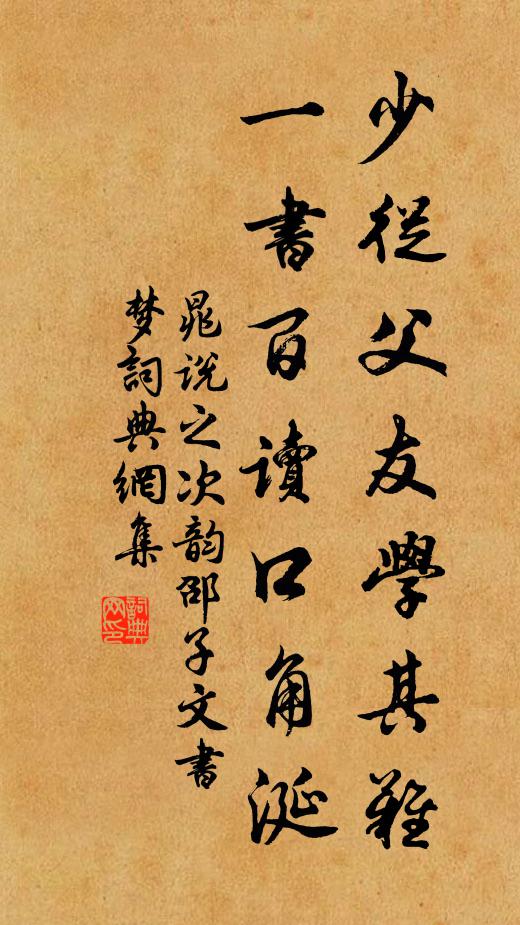 少從父友學其難
一書百讀口角涎
晁說之次韵邵子文書
梦詞典網集
詞典網印